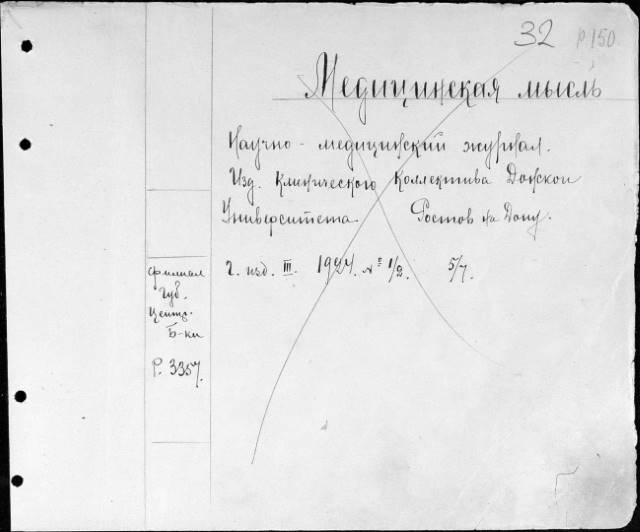 32 р 150
Медицинская мысль
Научно - медицинский журнал.
Изд. Клинического Коллектива Донской
Университета. Ростов на Дону.
Г. изд. III. 1924. № 1/2. 5/7.
филиал
Губ.
Центр.
Б-ки
Р. 3357.